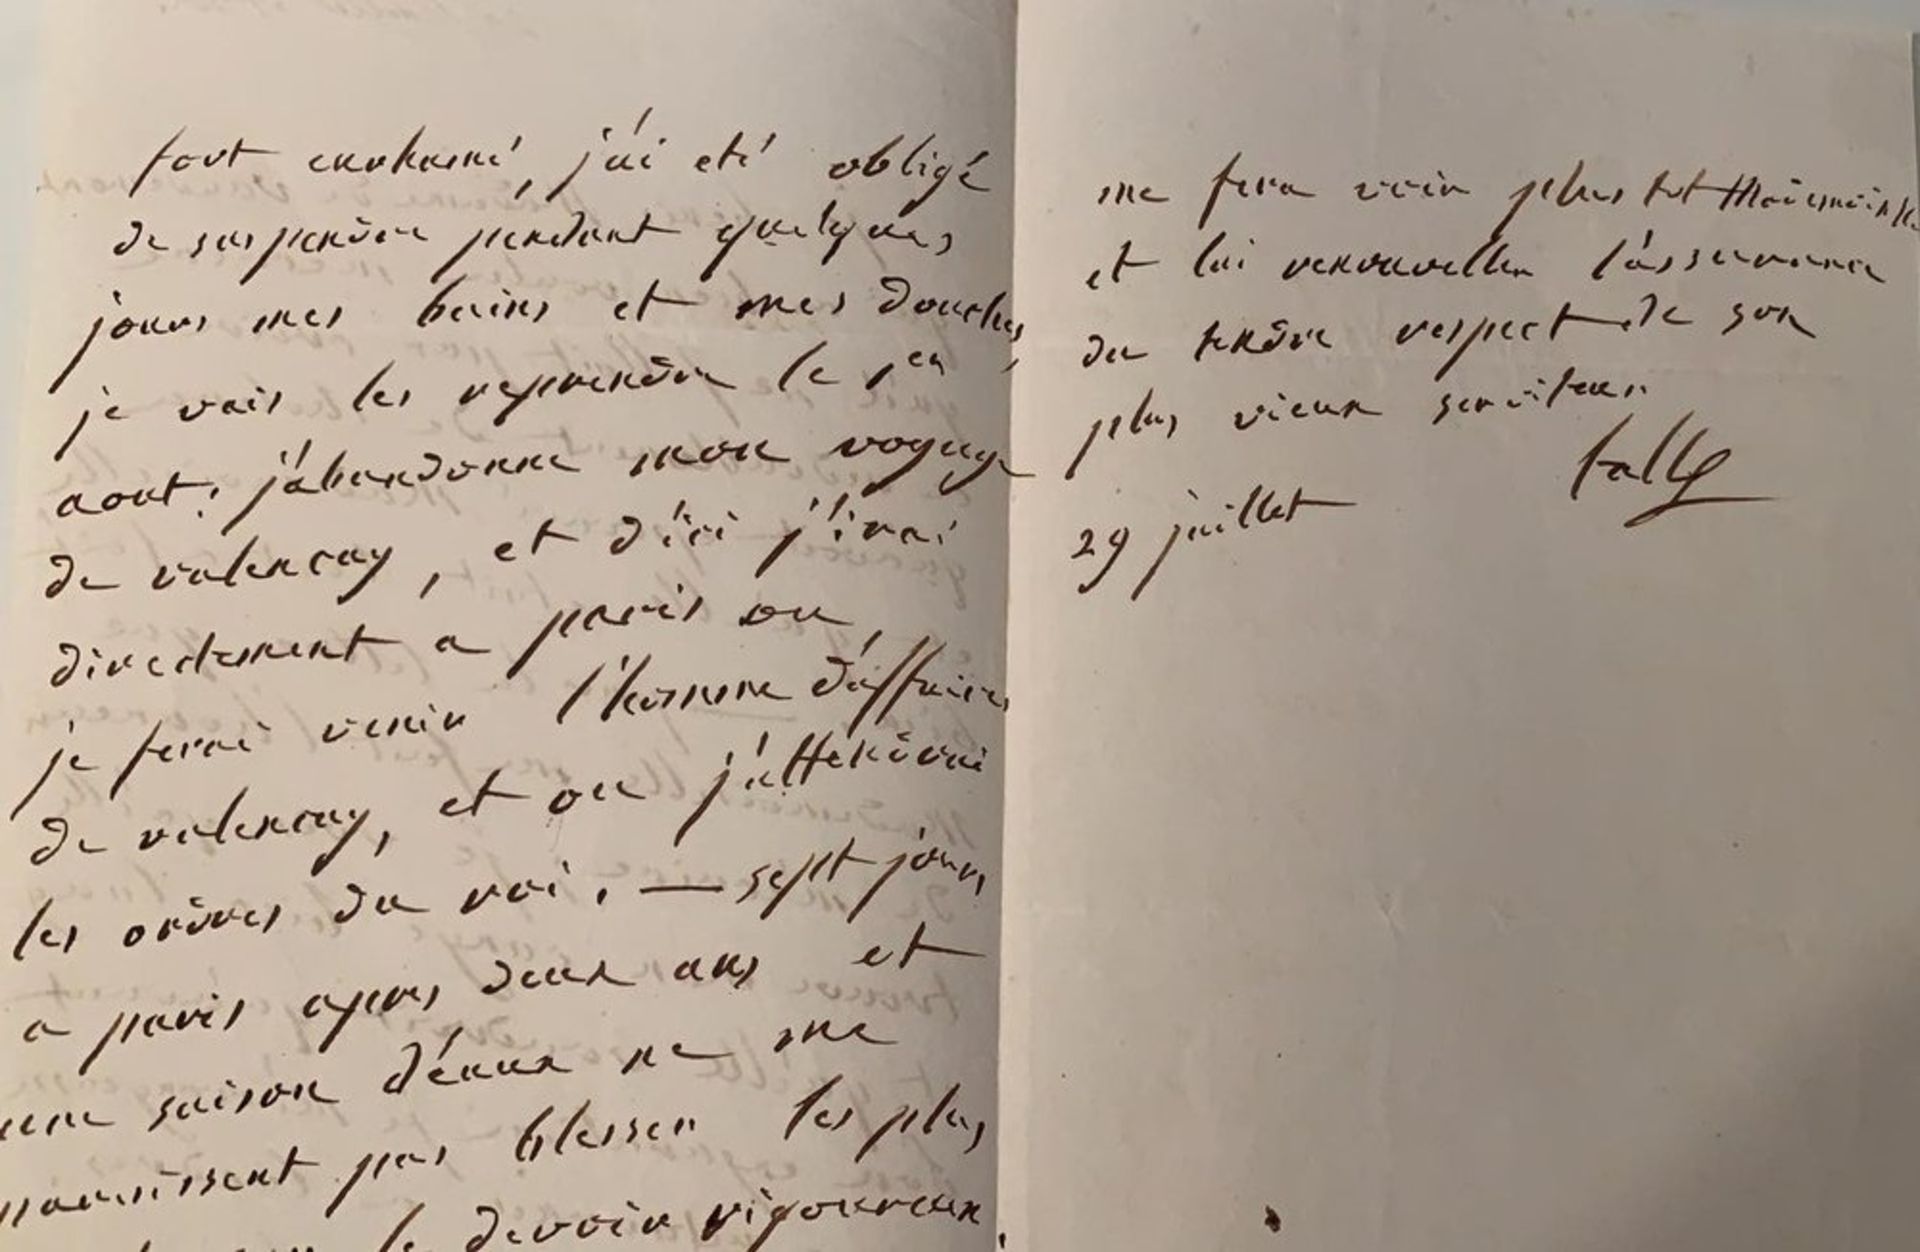 fort enrhumé, j'ai eté obligé
de suspendre pendant quelques
jours mes bains et mes douches,
je vais les reprendre le 1er
aout: j'abandonne mon voyage
de valencay, et d'ici j'irai
directement a paris ou
je ferai venir l'homme d'affaires
de valencay, et ou j'attendrai
les ordres du roi. — sept jours
a paris apres deux ans et
une saison d'eaux ne me
paroissent pas blesser les plus
le devoir rigoureux.
me fera voir plus tot
et lui renouveller l'assurance
du tendre respect de son
plus vieux serviteur.
tally
29 juillet